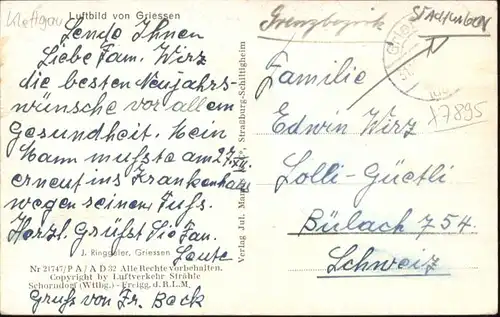 Klettgau
Luftbild von Griessen
Sende Ihnen
Liebe Fam. Wirz
die besten Neujahrs-
wünsche vor allem
Gesundheit. Mein
Mann mußste am 27. XII.
erneut ins Krankenhaus
wegen seinem Fuß.
Herzl. Grüßst Sie Fam.
J. Ringgeler, Griessen
Laute
Nr 21747/P A/A D 32 Alle Rechte vorbehalten.
Copyright by Luftverkehr Strähle
Schorndorf (Wttbg.) - Freigg. d. R.L.M.
Gruß von Fr. Bock
Verlag Jul. Straßburg-Schiltigheim
Grenzbezirk
Familie
Edwin Wirz
Lolli-Güetli
Bülach 754.
Schweiz
17895